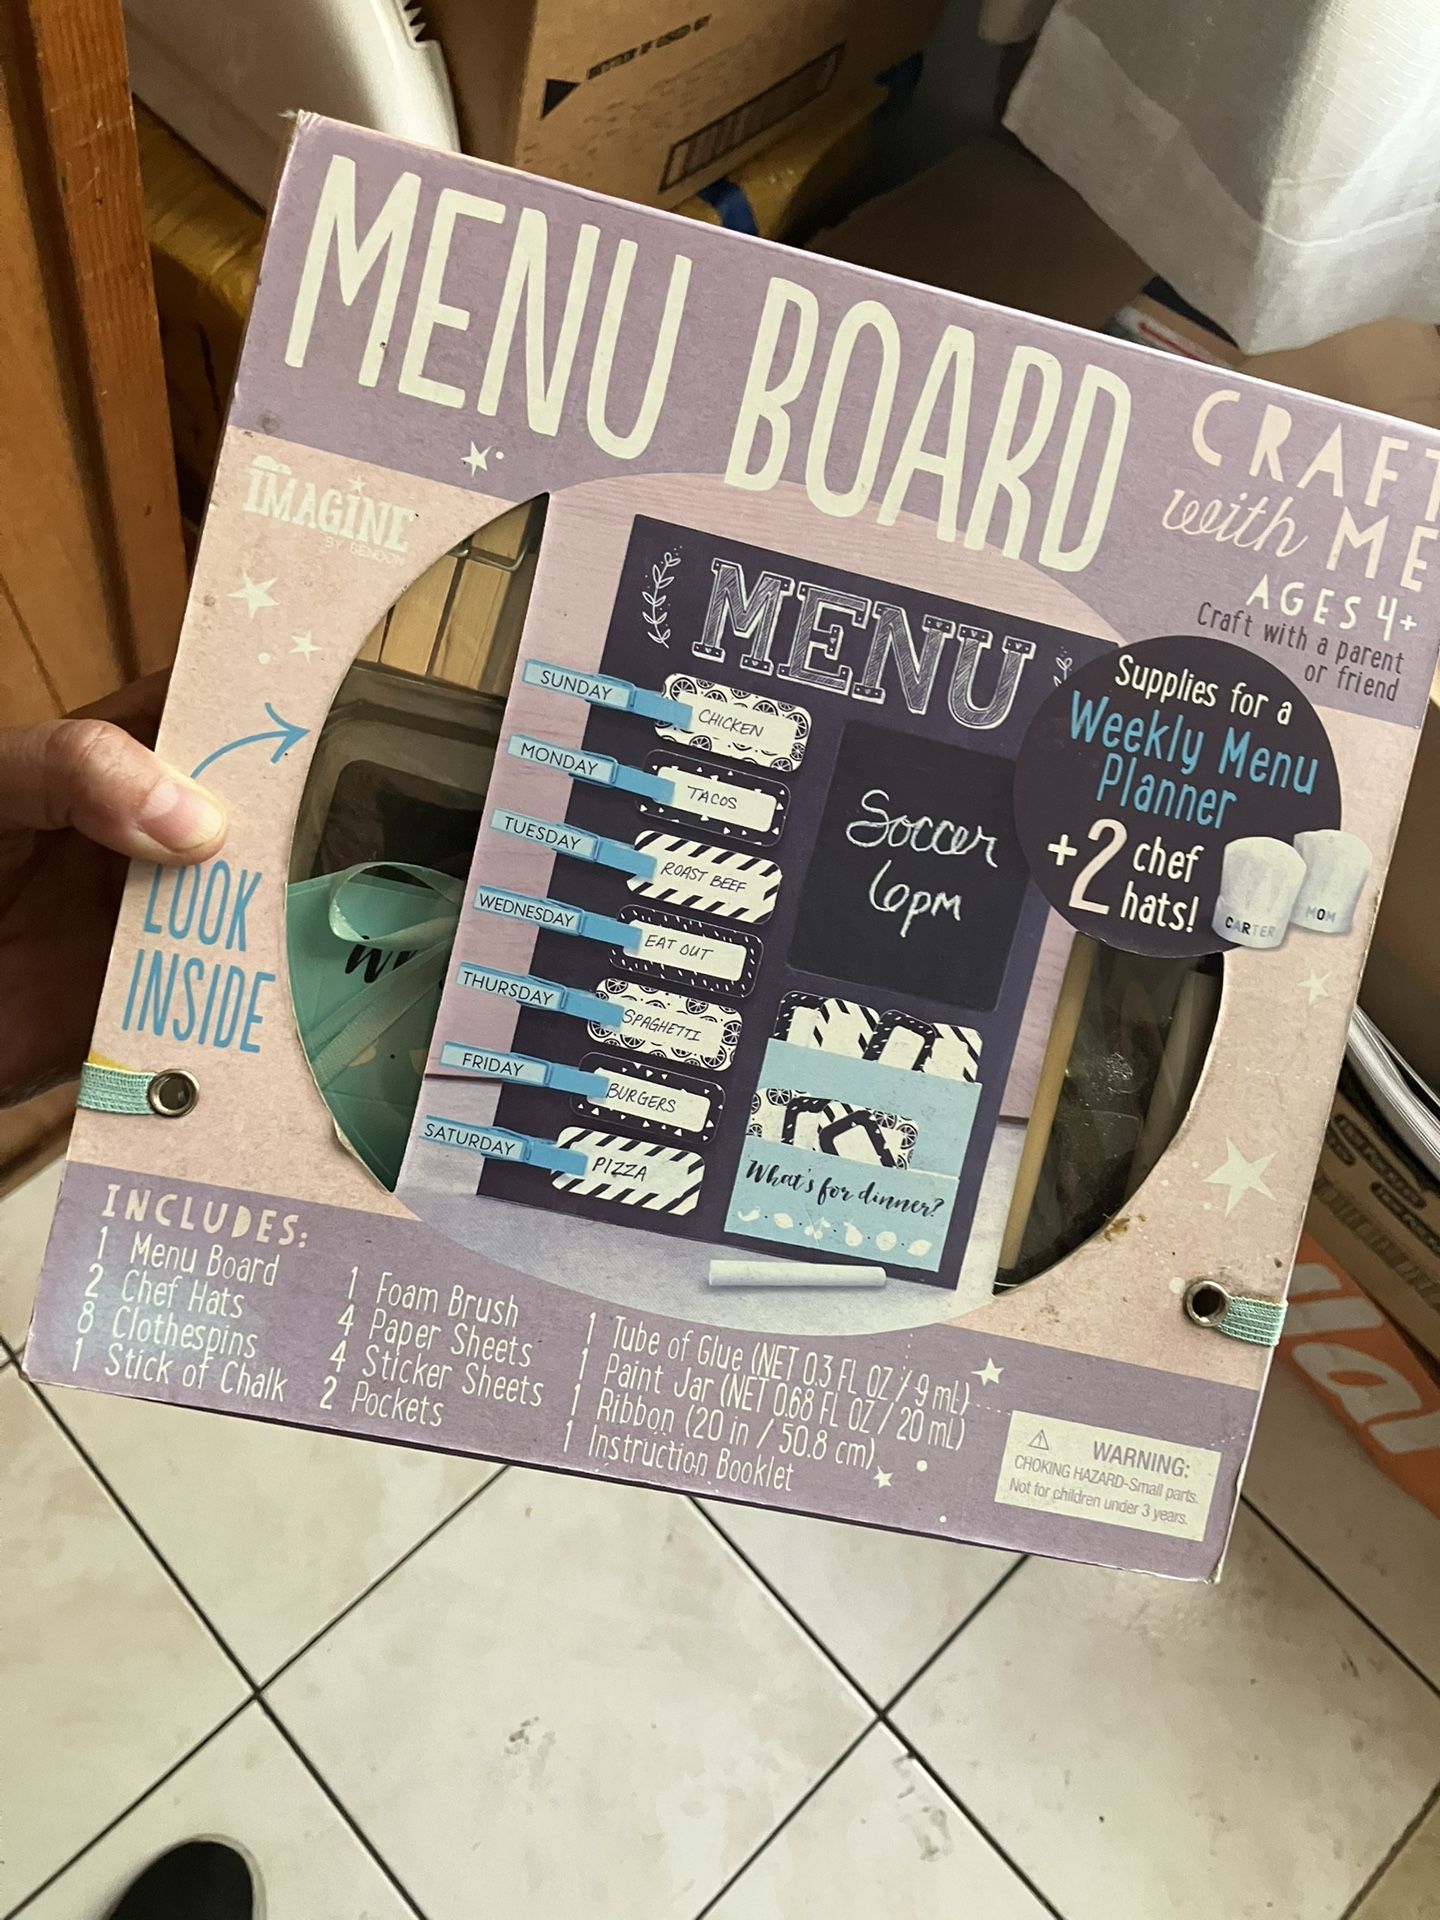 BETTER IF USED BY
MENU BOARD
CRAFT
with ME
AGES 4+
Craft with a parent
or friend
IMAGINE
BY GENDON
Supplies for a
Weekly Menu
Planner
+2 chef
hats!
CARTER
MOM
MENU
SUNDAY
CHICKEN
MONDAY
TACOS
TUESDAY
ROAST BEEF
WEDNESDAY
EAT OUT
THURSDAY
SPAGHETTI
FRIDAY
BURGERS
SATURDAY
PIZZA
Soccer
6pm
What's for dinner?
LOOK
INSIDE
INCLUDES:
1 Menu Board
2 Chef Hats
8 Clothespins
1 Stick of Chalk
1 Foam Brush
4 Paper Sheets
4 Sticker Sheets
2 Pockets
1 Tube of Glue (NET 0.3 FL OZ / 9 mL)
1 Paint Jar (NET 0.68 FL OZ / 20 mL)
1 Ribbon (20 in / 50.8 cm)
1 Instruction Booklet
WARNING:
CHOKING HAZARD-Small parts.
Not for children under 3 years.